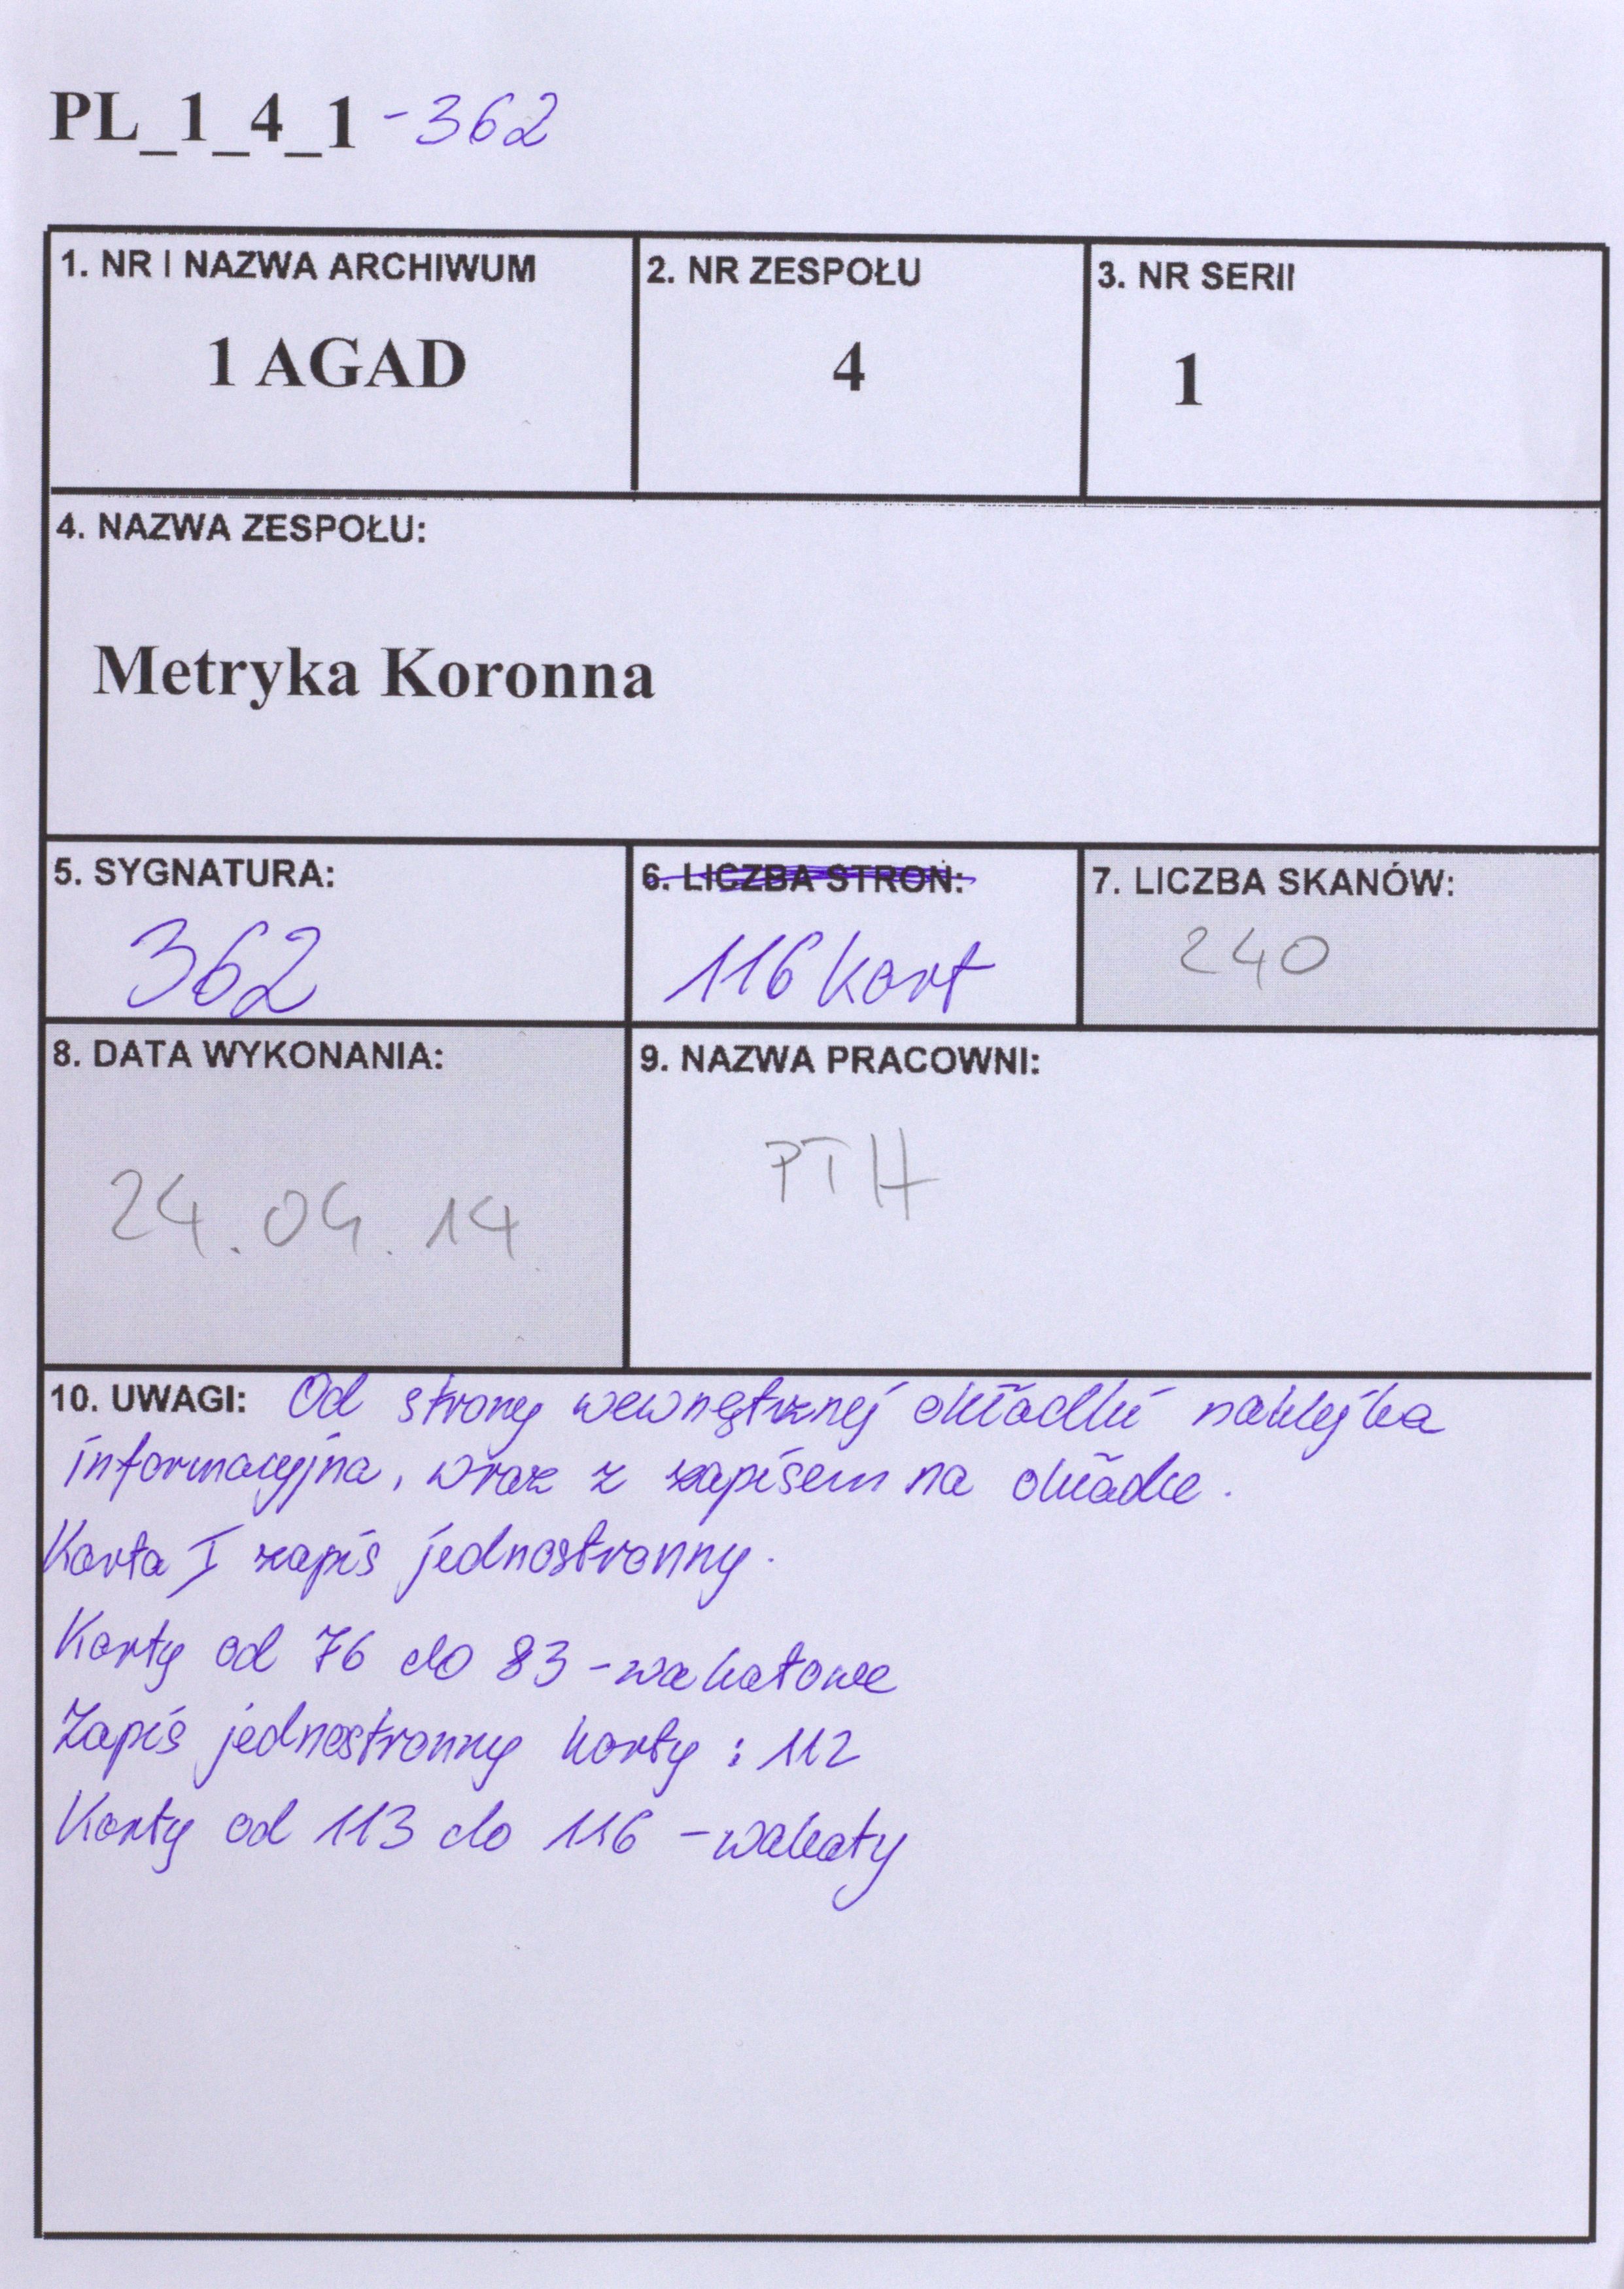 PL_1_4_1 -362
1. NR I NAZWA ARCHIWUM
1 AGAD
2. NR ZESPOŁU
4
3. NR SERII
1
4. NAZWA ZESPOŁU:
Metryka Koronna
5. SYGNATURA:
362
6. LICZBA STRON:
116 kart
7. LICZBA SKANÓW:
240
8. DATA WYKONANIA:
24.04.14
9. NAZWA PRACOWNI:
PTH
10. UWAGI: Od strony wewnętrznej okładki naklejka
informacyjna, wraz z zapisem na okładce.
Karta I zapis jednostronny.
Karty od 76 do 83 - wakatowe
Zapis jednostronny karty : 112
Karty od 113 do 116 - wakaty